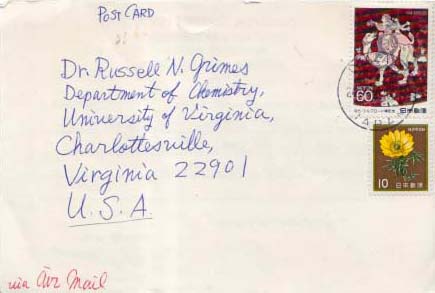 POST CARD
Dr. Russell N. Grimes
Department of Chemistry,
University of Virginia,
Charlottesville,
Virginia 22901
U.S.A.
via Air Mail
60
日本郵便
NIPPON
10
日本郵便